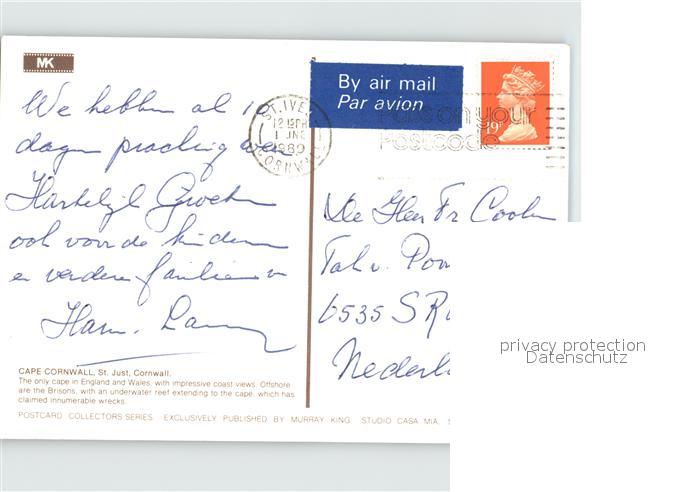 MK
By air mail
Par avion
ST. IVES
1 JNE
1989
CORNWALL
Pass on your
Postcode
19
We hebben al 10
dagen prachtig weer
Hartelijk Groeten
ook voor de kinderen
en verdere familie
Harm.
De Heer Fr
6535 S
Nederl
CAPE CORNWALL, St. Just, Cornwall.
The only cape in England and Wales, with impressive coast views. Offshore
are the Brisons, with an underwater reef extending to the cape, which has
claimed innumerable wrecks.
POSTCARD COLLECTORS SERIES. EXCLUSIVELY PUBLISHED BY MURRAY KING. STUDIO CASA MIA,
privacy protection
Datenschutz